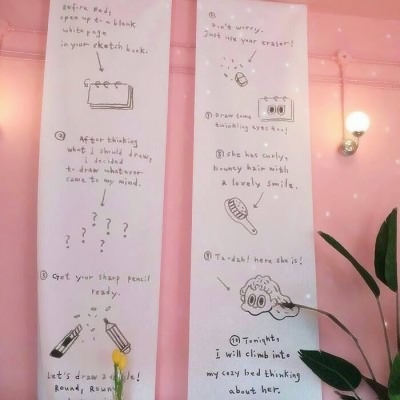 Before bed,
open up to a blank
white page
in your sketch book.
② After thinking
what I should draw,
I decided
to draw whatever
came to my mind.
? ? ? ? ? ?
③ Get your sharp pencil
ready.
Let's draw a circle!
Round, Round
Don't worry.
Just use your eraser!
⑦ Draw some
twinkling eyes too!
⑧ She has curly,
bouncy hair with
a lovely smile.
⑨ Ta-dah! here she is!
⑩ Tonight,
I will climb into
my cozy bed thinking
about her.